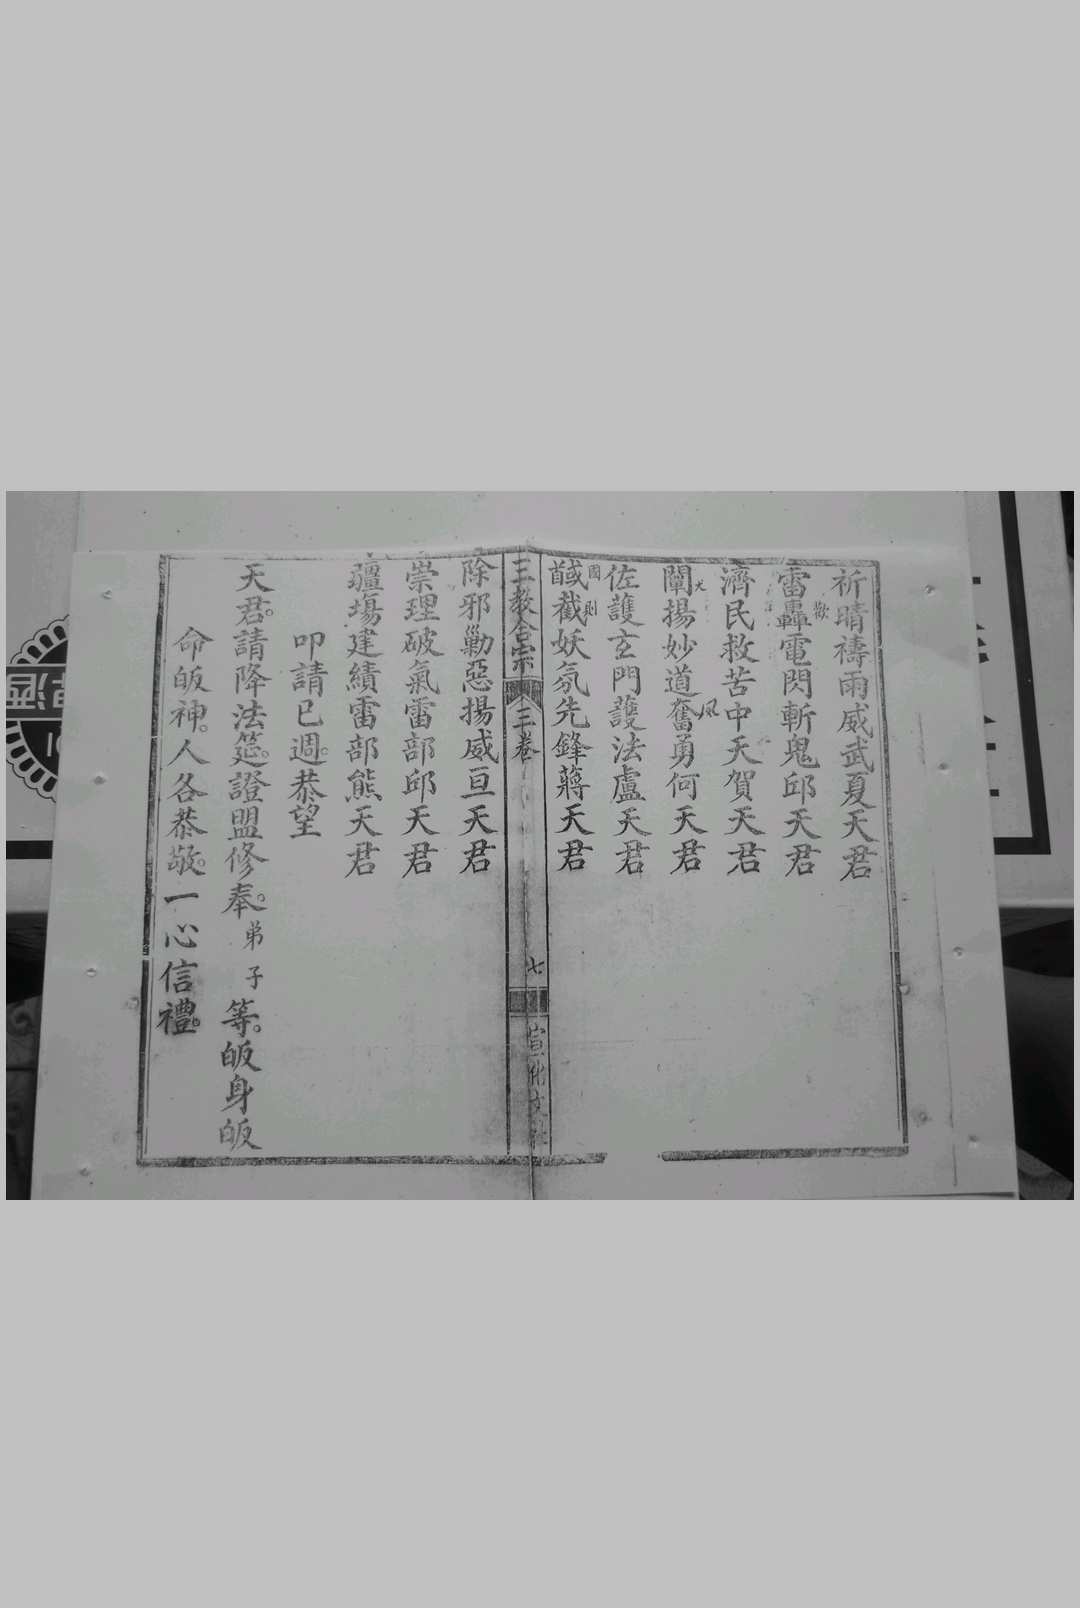 祈晴禱雨威武夏天君
雷轟電閃斬鬼邱天君
歡
濟民救苦中天賀天君
闡揚妙道奮勇何天君
大
風
佐護玄門護法盧天君
馘截妖氛先鋒蔣天君
國 則
三教合宗
三卷
七
宣化文社
除邪勦惡揚威亘天君
崇理破氣雷部邱天君
疆場建績雷部熊天君
叩請已週。恭望
天君。請降法筵。證盟修奉。弟子等。皈身皈
命皈神。人各恭敬。一心信禮。